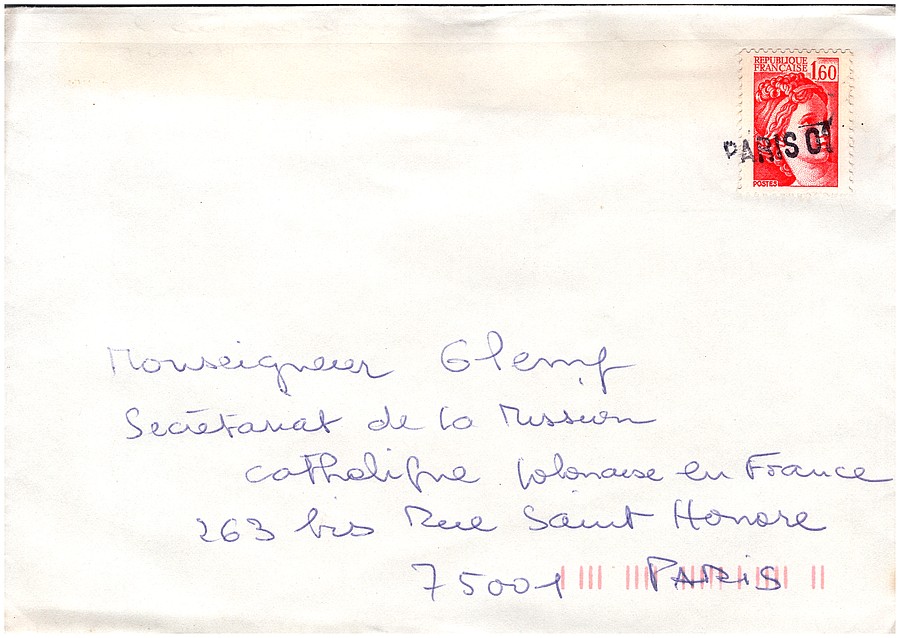 REPUBLIQUE
FRANÇAISE 1,60
PARIS 01
POSTES
Monseigneur Glemp
Secrétariat de la Mission
catholique polonaise en France
263 bis Rue Saint Honore
75001 PARIS